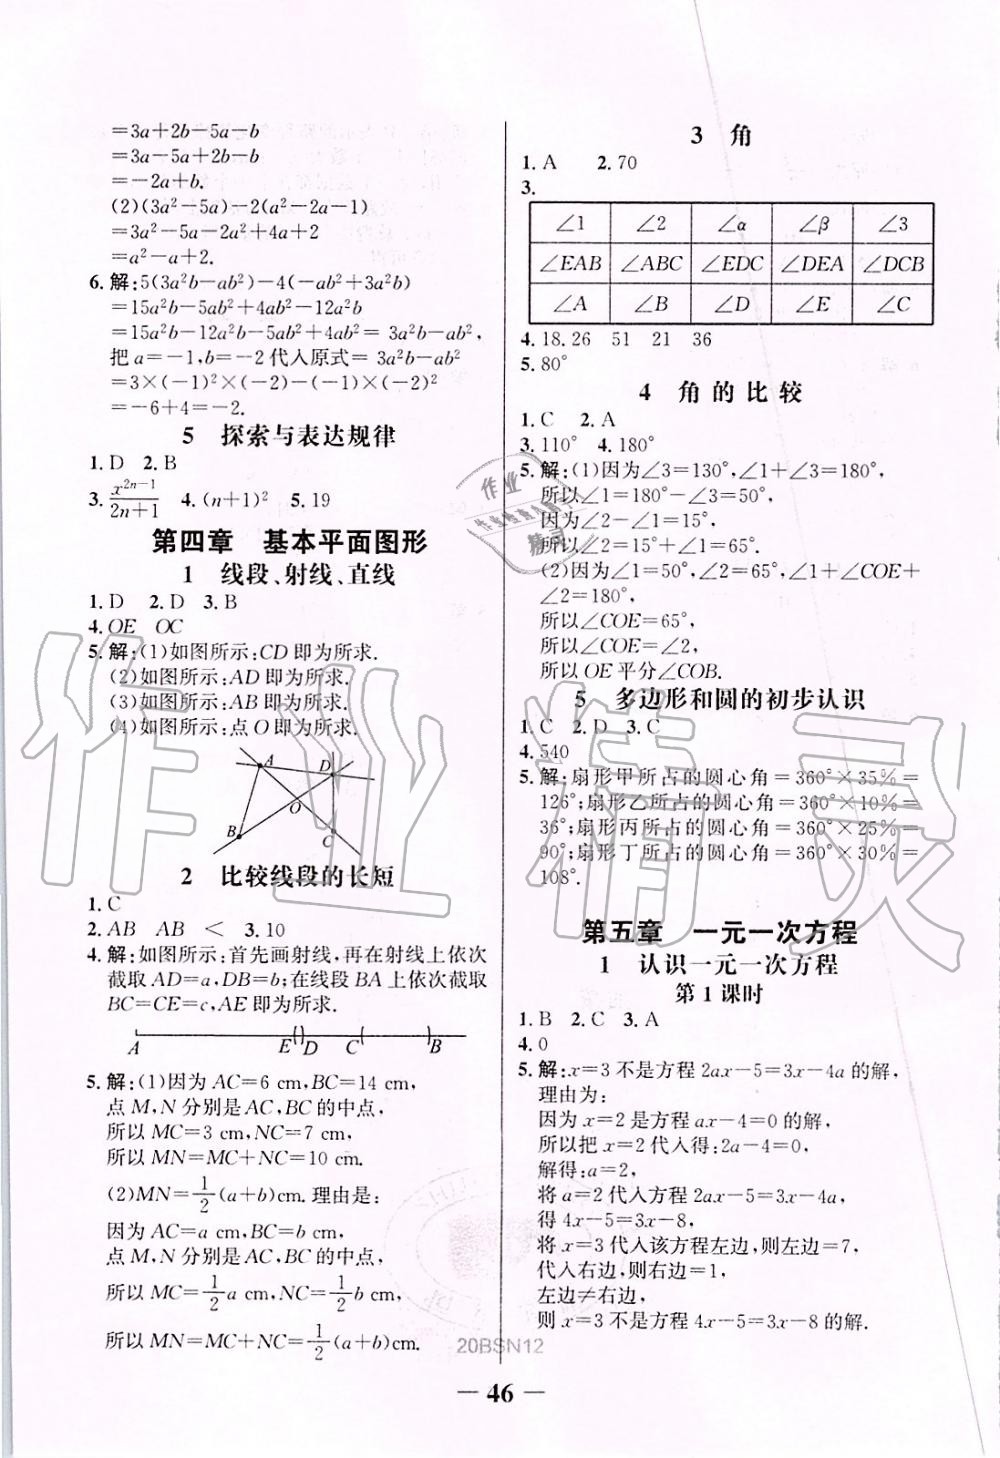 =3a+2b-5a-b
=3a-5a+2b-b
=-2a+b.
(2)(3a²-5a)-2(a²-2a-1)
=3a²-5a-2a²+4a+2
=a²-a+2.
6. 解:5(3a²b-ab²)-4(-ab²+3a²b)
=15a²b-5ab²+4ab²-12a²b
=15a²b-12a²b-5ab²+4ab²= 3a²b-ab²,
把a=-1,b=-2代入原式= 3a²b-ab²
=3×(-1)²×(-2)-(-1)×(-2)²
=-6+4=-2.
5 探索与表达规律
1. D 2. B
3. x²ⁿ⁻¹/2n+1 4. (n+1)² 5. 19
第四章 基本平面图形
1 线段、射线、直线
1. D 2. D 3. B
4. OE OC
5. 解:(1)如图所示:CD即为所求.
(2)如图所示:AD即为所求.
(3)如图所示:AB即为所求.
(4)如图所示:点O即为所求.
A D
O
B C
2 比较线段的长短
1. C
2. AB AB < 3. 10
4. 解:如图所示:首先画射线,再在射线上依次
截取AD=a,DB=b;在线段BA上依次截取
BC=CE=c,AE即为所求.
A E D C B
5. 解:(1)因为AC=6 cm,BC=14 cm,
点M,N分别是AC,BC的中点,
所以MC=3 cm,NC=7 cm,
所以MN=MC+NC=10 cm.
(2)MN=1/2(a+b)cm. 理由是:
因为AC=a cm,BC=b cm,
点M,N分别是AC,BC的中点,
所以MC=1/2a cm,NC=1/2b cm,
所以MN=MC+NC=1/2(a+b) cm.
3 角
1. A 2. 70
3.
∠1 ∠2 ∠α ∠β ∠3
∠EAB ∠ABC ∠EDC ∠DEA ∠DCB
∠A ∠B ∠D ∠E ∠C
4. 18.26 51 21 36
5. 80°
4 角的比较
1. C 2. A
3. 110° 4. 180°
5. 解:(1)因为∠3=130°,∠1+∠3=180°,
所以∠1=180°-∠3=50°.
因为∠2-∠1=15°,
所以∠2=15°+∠1=65°.
(2)因为∠1=50°,∠2=65°,∠1+∠COE+
∠2=180°,
所以∠COE=65°,
所以∠COE=∠2,
所以OE平分∠COB.
5 多边形和圆的初步认识
1. C 2. D 3. C
4. 540
5. 解:扇形甲所占的圆心角=360°×35%=
126°;扇形乙所占的圆心角=360°×10%=
36°;扇形丙所占的圆心角=360°×25%=
90°;扇形丁所占的圆心角=360°×30%=
108°.
第五章 一元一次方程
1 认识一元一次方程
第1课时
1. B 2. C 3. A
4. 0
5. 解:x=3不是方程2ax-5=3x-4a的解,
理由为:
因为x=2是方程ax-4=0的解,
所以把x=2代入得:2a-4=0,
解得:a=2,
将a=2代入方程2ax-5=3x-4a,
得4x-5=3x-8,
将x=3代入该方程左边,则左边=7,
代入右边,则右边=1,
左边≠右边,
则x=3不是方程4x-5=3x-8的解.
20BSN12
— 46 —
作业精灵
作业
精灵